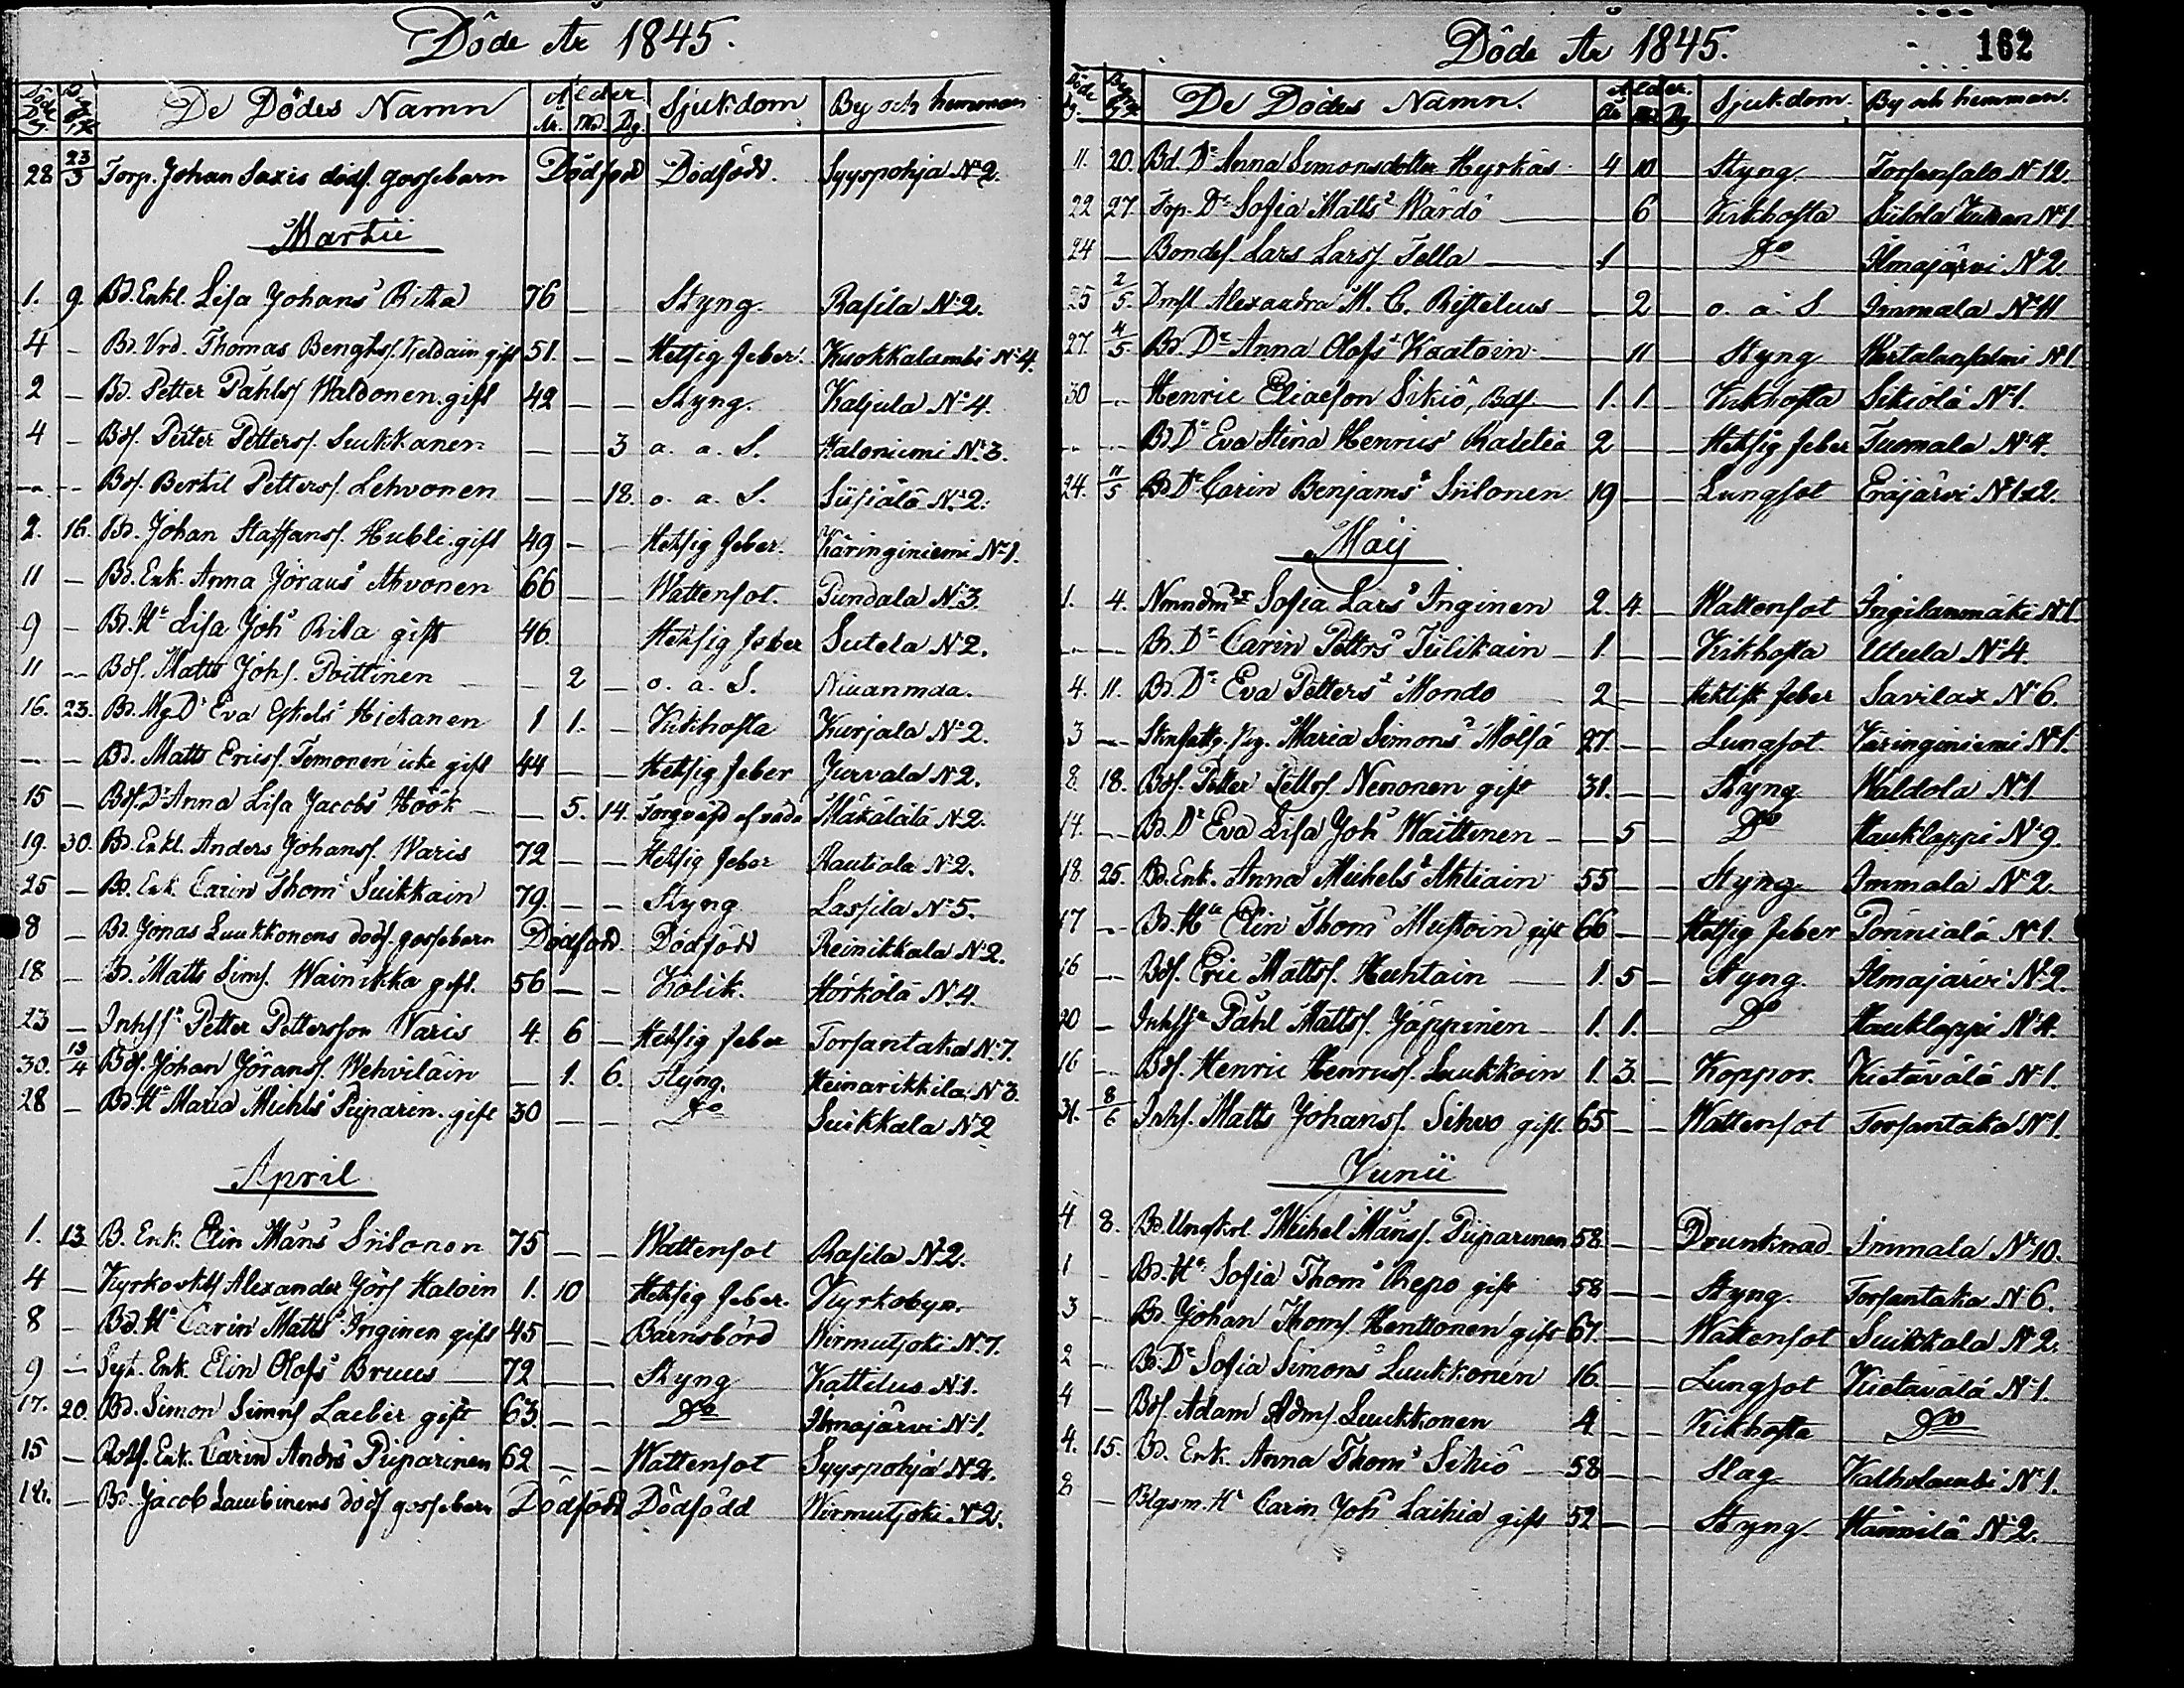 Döde År 1845.
Döde Dg. De Dödes Namn Ålder År. Md. Dg. Sjukdom By och hemman
28 23/3 Torp. Johan Saxis dödf. gossebarn Dödfödd Dödfödd. Syyspohja N:o 2.
Martii
1. 9. Bd. Enkl. Lisa Johans Rita 76 — Styng. Rasila N:o 2.
4 — Bd. Vrd. Thomas Benghs. gift 51. — — Hetsig feber. Kuokkalambi N:o 4.
2 — Bd. Petter Påhls. Waldonen. gift 42 — — Styng. Kaljula N:o 4.
4 — Bds. Petter Petters. Suikkanen — — 3 o. a. S. Haloniemi N:o 3.
— — Bds. Bertil Petters. Lehvonen — — 18. o. a. S. Siisiälä N:o 2.
2. 16. Bd. Johan Staffans. Hubli. gift 49 — — Hetsig feber. Käringiniemi N:o 1.
11 — Bd. Enk. Anna Jörans Ahvonen 66 — — Wattensot. Pundala N:o 3.
9 — Bd. Hu Lisa Joh Rita gift 46. Hetsig feber Sutela N:o 2.
11 — Bds. Matts Johs. Poittinen — 2 — o. a. S. Niuanmaa.
16. 23. Bd. Mg. Dr Eva Eskels Hietanen 1 1. — Kikhosta Kurjala N:o 2.
— — Bd. Matts Erics. Temonen icke gift 44 — — Hetsig feber Jurvala N:o 2.
15 — Bds. Dr Anna Lisa Jacobs Höök — — 5. 14. Mäkälälä N:o 2.
19. 30. Bd. Enkl. Anders Johans. Waris 72 — — Hetsig feber Rautiala N:o 2.
25 — Bd. Enk. Carin Thom Suikkain 79. — — Styng Lassila N:o 5.
8 — Bd. Jonas Luukkonens dödf. gossebarn Dödfödd. Dödfödd Reinikkala N:o 2.
18 — Bd. Matts Sims. Wainikka gift. 56 — — Kolik. Hörkölä N:o 4.
23 — Inhss Petter Pettersson Waris 4. 6 — Hetsig feber Torsantaka N:o 7.
30. 13/4 Bds. Johan Jörans. Wehviläin — 1. 6. Styng. Heinarikkila N:o 3.
28 — Bd. Hu Maria Michls Piiparin. gift 30 — — Do Suikkala N:o 2
April
1. 13. B. Enk. Elin Måns Siilonen 75 — — Wattensot Rasila N:o 2.
4 — Alexander Jörs Haloin 1. 10 Hetsig feber. Kyrkobyn.
8 — Bd. Hu Carin Matts Inginen gift 45 — — Barnsbörd Wirmutjoki N:o 7.
9 — Enk. Elin Olofs Bruus — 72 — — Styng Kattelus N:o 1.
17. 20. Bd. Simon Simns Laeber gift 63. — — Do Ilmajärvi N:o 1.
15 — Enk. Carin Andrs Piiparinen 62 — — Wattensot Syyspohja N:o 2.
18. — Bd. Jacob Laurinens dödf. gossebarn Dödfödd Dödfödd Wirmutjoki N:o 2.
Döde År 1845. 162
Döde dg. De Dödes Namn. Ålder. År Md Dg Sjukdom. By och hemman.
11. 20. Bd. Dr Anna Simonsdotter Hyrkäs 4 10 — Styng. Torsansalo N:o 12.
22 27 Torp. Dr Sofia Matts Wärdö — 6 — Kikhosta Siilola N:o 1.
24 — Bondes. Lars Larss. Tella — 1 — Do Ilmajärvi N:o 2.
25 2/5. Alexandra M. C. Ristelius — 2 — o. a. S Immala N:o 11
27. 4/5. Bd. Dr Anna Olofs Kaatoin — 11 — Styng Kertalansalmi N:o 1.
30 — Henric Eliaeson Sikiö, Bds. — 1. 1. — Kikhosta Sikiölä N:o 1.
— — Bd. Dr Eva Stina Henrics Rautia 2 — — Hetsig feber Tuomala N:o 4.
24. 11/5 Bd. Dr Carin Benjams Siilonen 19 — — Lungsot Eräjärvi N:o 1 & 2.
Maij
1. 4. Nmndm Dr Sofia Lars Inginen 2. 4. — Wattensot Ingilanmäki N:o 1.
— — Bd. Dr Carin Pettrs Tiilikain — 1. — — Kikhosta Utula N:o 4.
4. 11. Bd. Dr Eva Petters Mondo — 2 — — Hektisk feber Savilax N:o 6.
3 — Pig. Maria Simons Mölsä 27. — — Lungsot Käringiniemi N:o 1.
8. 18. Bds. Petter Petters. Nenonen gift 31. — — Styng Waldola N:o 1
14. — Bd. Dr Eva Lisa Joh Waittinen — — 5 — Do Hauklappi N:o 9.
18. 25. Bd. Enk. Anna Michels Ahtiain 55 — — Styng Immala N:o 2
17 — Bd. Hu Elin Thom Mustoin gift 66 — — Hetsig feber Ponniälä N:o 1.
16 — Bds. Eric Matts. Huhtain — 1. 5 — Styng. Ilmajärvi N:o 2.
20 — Inhss Påhl Matts. Jäppinen — 1. 1. — Do Hauklappi N:o 4.
16 — Bds. Henric Henrics. Luukkoin 1. 3. — Koppor. Kietävälä N:o 1.
31. 8/6 Inhs. Matts Johans. Sihvo gift. 65 — — Wattensot Torsantaka N:o 1.
Junii
4 8. Bd. Ungkrl. Michel Måns. Piiparinen 58. — — Drunknad Immala N:o 10.
1 — Bd. Hu Sofia Thom Repo gift 58 — — Styng. Torsantaka N:o 6.
3 — Bd. Johan Thoms. Henttonen gift 67. — — Wattensot Suikkala N:o 2.
2 — Bd. Dr Sofia Simons Luukkonen 16. — — Lungsot Kietävälä N:o 1.
4 — Bds. Adam Adms. Luukkonen 4 — — Kikhosta Do
4. 15. Bd. Enk. Anna Thom Sikiö — 58 — — Slag Kalholambi N:o 1.
8 — Carin Joh Laikia gift 52 — — Styng. Hännilä N:o 2.